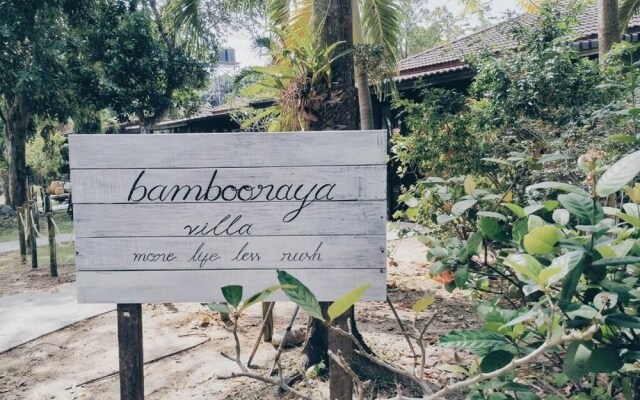 bambooraya
villa
more life less rush